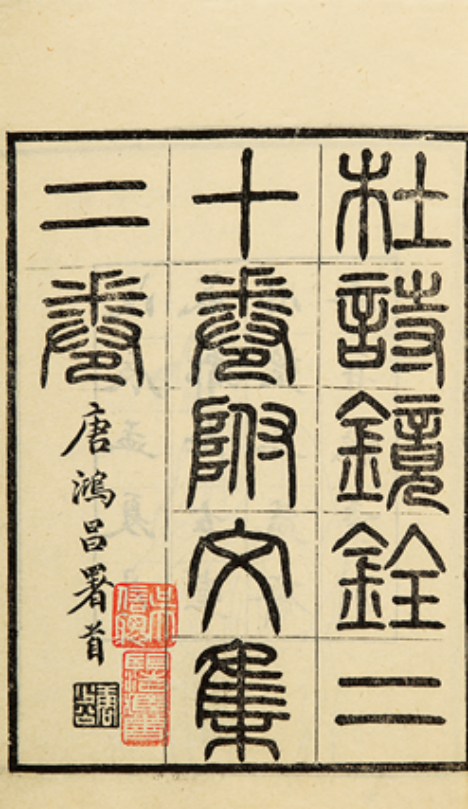 杜詩鏡銓二
十卷附文集
二卷
唐鴻昌署首